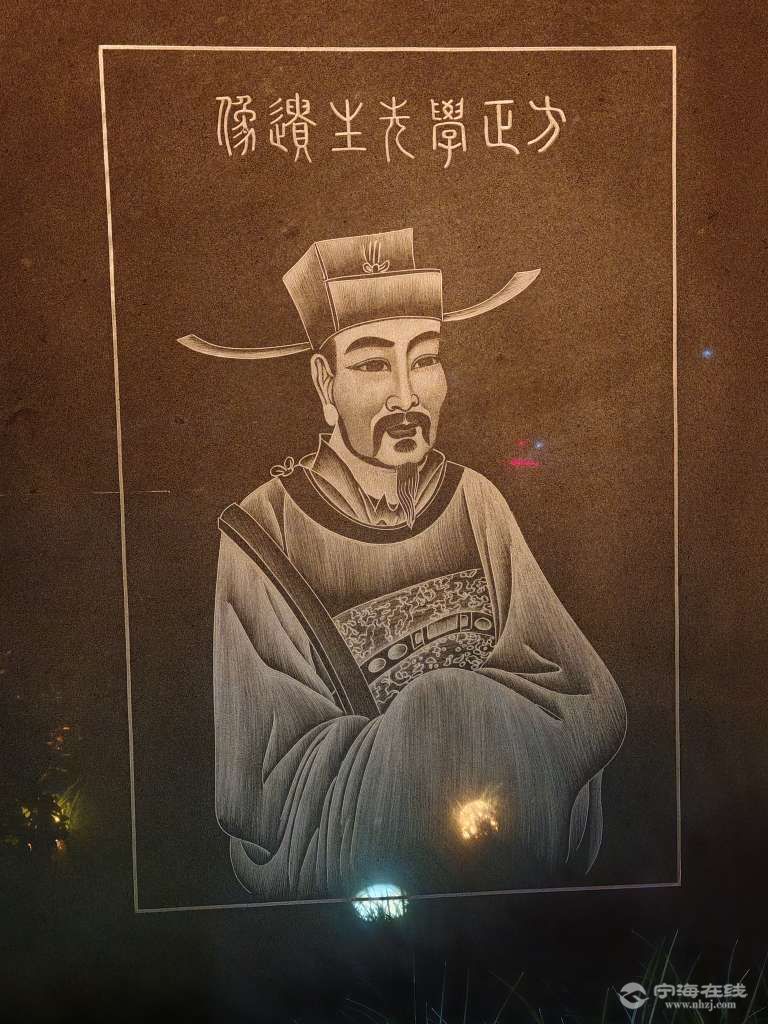 方正學先生遺像
宁海在线
www.nhzj.com